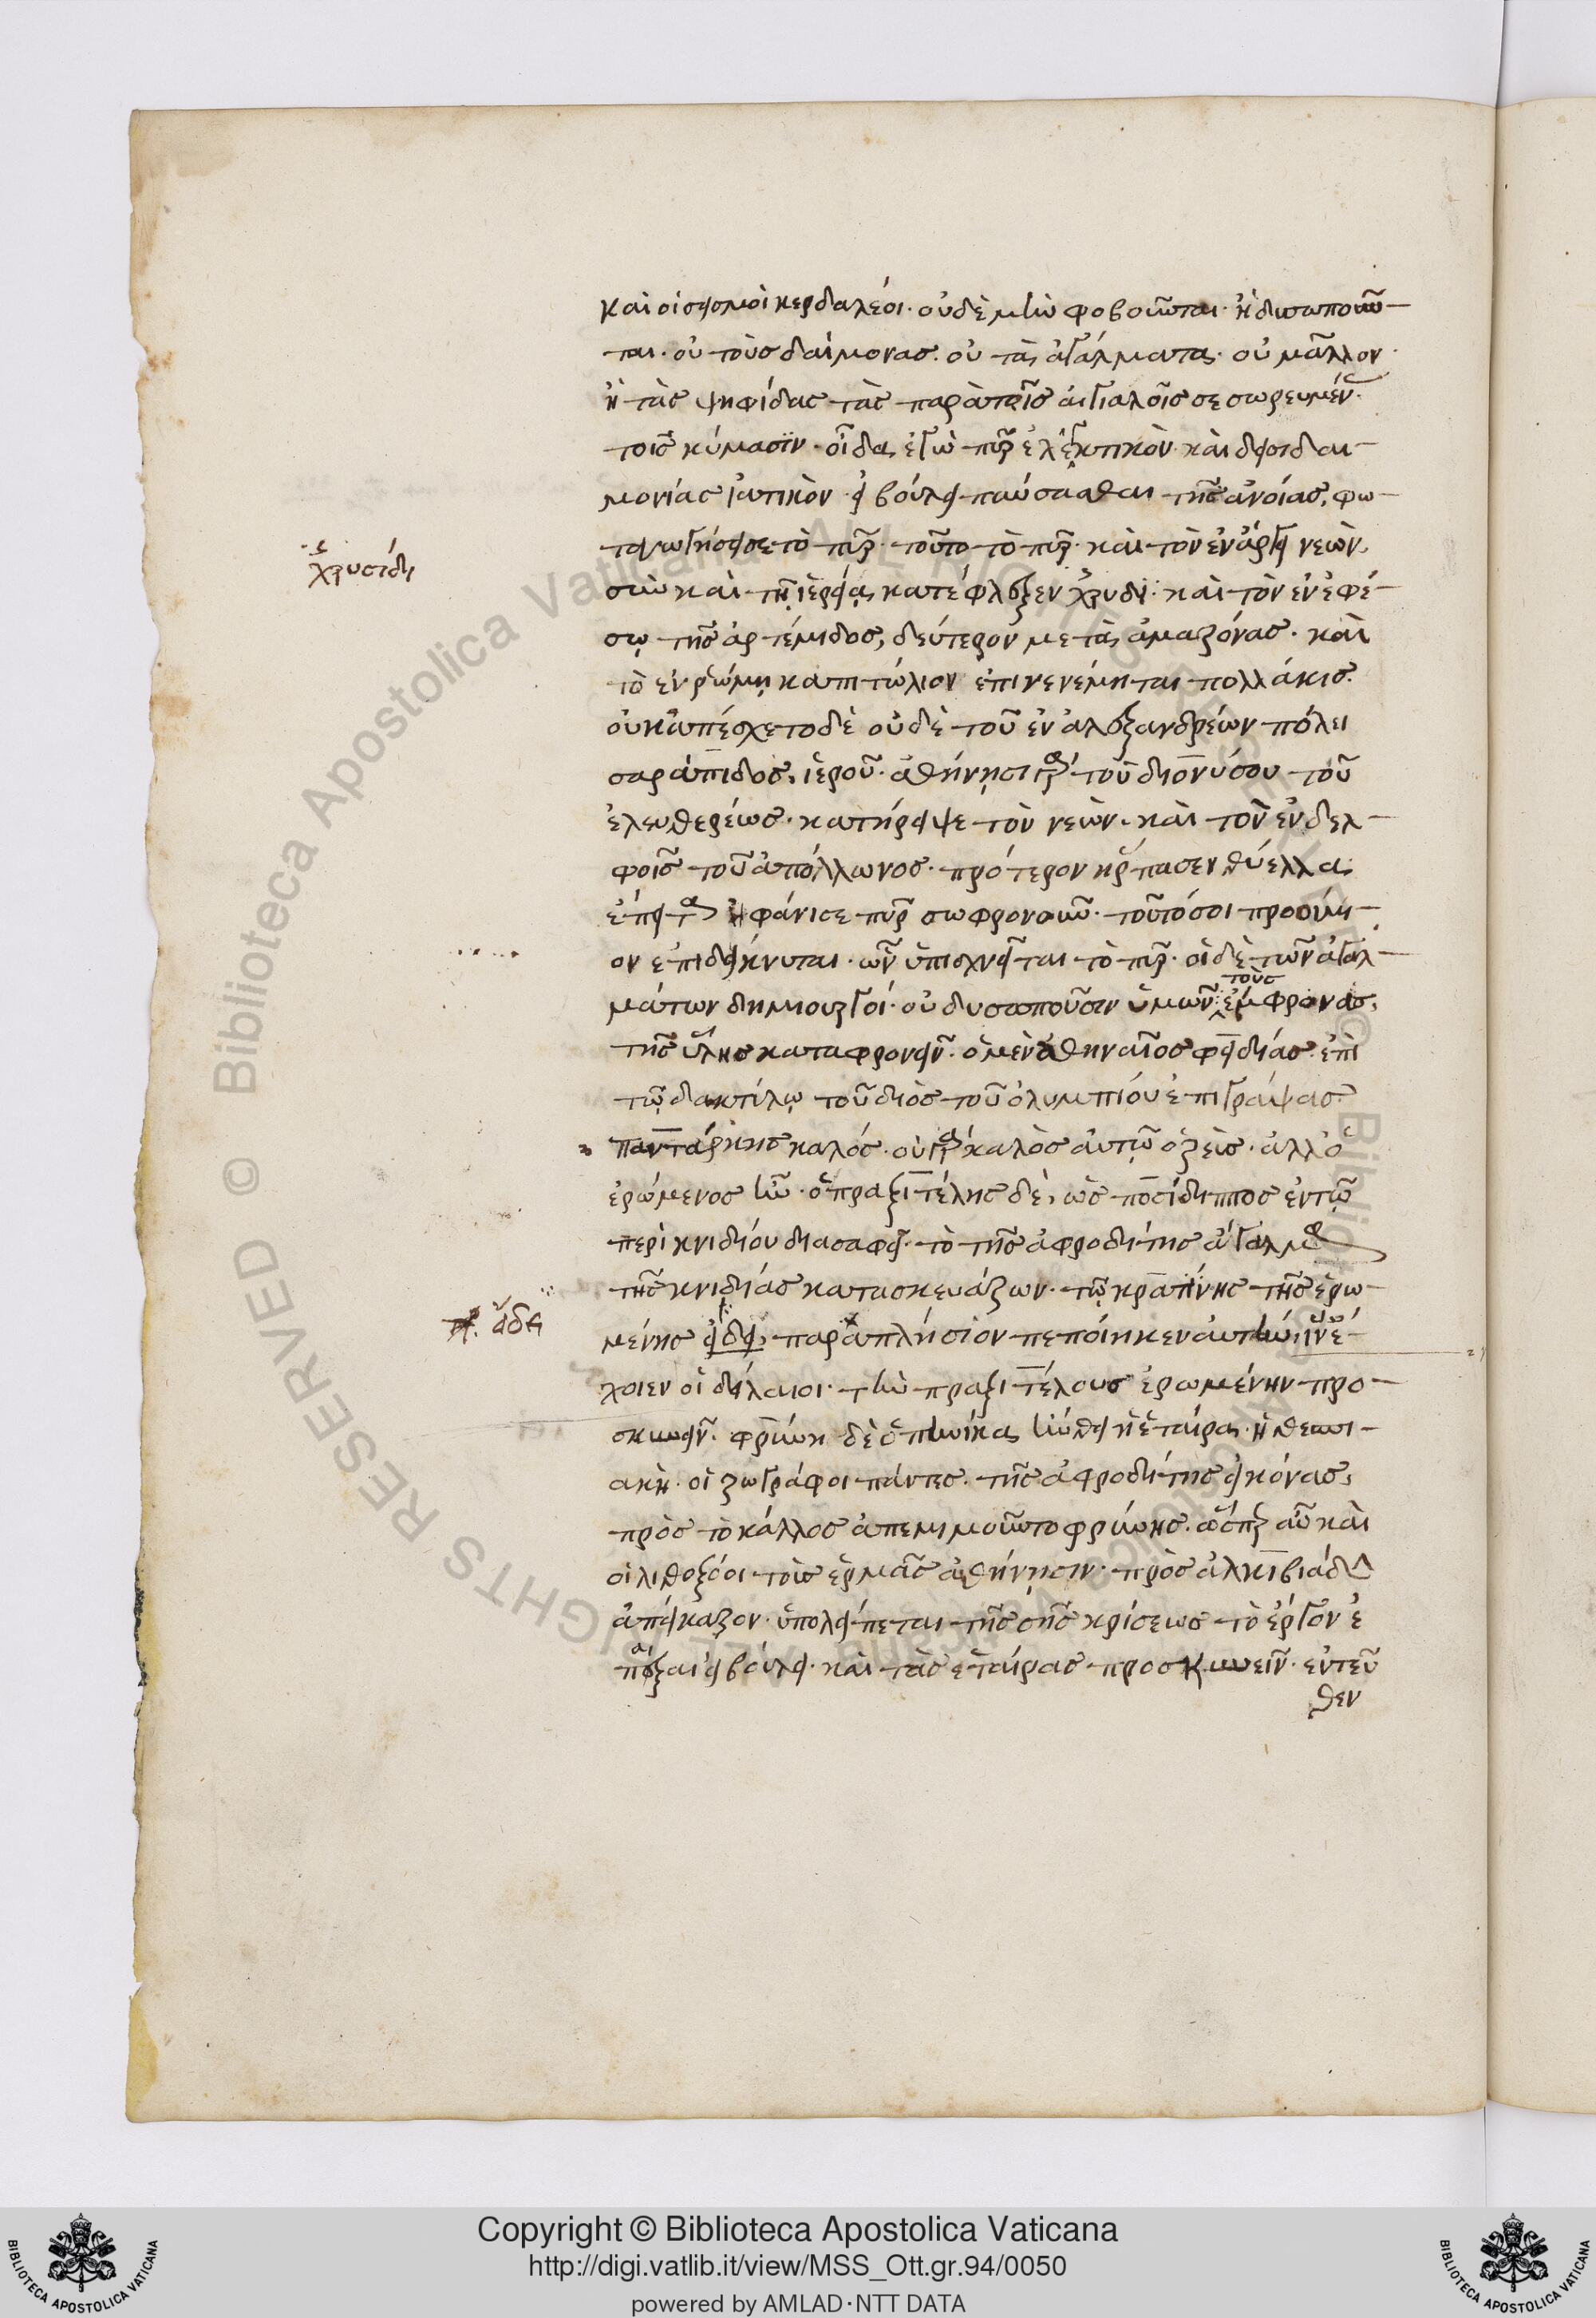 καὶ οἱ σεισμοὶ κερδαλέοι· οὐδὲ μὴν φοβοῦνται· ἢ δυσωποῦν-
ται· οὐ τοὺς δαίμονας· οὐ τὰ ἀγάλματα· οὐ μᾶλλον
ἢ τὰς ψηφίδας τὰς παρὰ τοῖς αἰγιαλοῖς σεσωρευμέν·
τοῖς κύμασιν· οἶδα ἐγὼ πῦρ ἐλεγκτικὸν καὶ δεισιδαι-
μονίας ἰατικὸν· εἰ βούλει παύσασθαι τῆς ἀνοίας, φω-
ταγωγήσει σε τὸ πῦρ· τοῦτο τὸ πῦρ· καὶ τὸν ἐν ἄργει νεὼν,
χρυσίδι
σὺν καὶ τῇ ἱερείᾳ κατέφλεξεν χρυδι· καὶ τὸν ἐν ἐφέ-
σῳ τῆς ἀρτέμιδος, δεύτερον μετὰ ἀμαζόνας· καὶ
τὸ ἐν ῥώμῃ καπιτώλιον ἐπινενέμηται πολλάκις·
οὐκ ἀπέσχετο δὲ οὐδὲ τοῦ ἐν ἀλεξανδρέων πόλει
σαράπιδος, ἱεροῦ· ἀθήνησι γὰρ τοῦ διονύσου τοῦ
ἐλευθερέως· κατήρειψε τὸν νεὼν· καὶ τὸν ἐν δελ-
φοῖς τοῦ ἀπόλλωνος· πρότερον ἥρπασεν θύελλα·
ἔπειτα ἠφάνισε πῦρ σωφρονοῦν· τοῦτό σοι προοίμι-
ον ἐπιδείκνυται· ὧν ὑπισχνεῖται τὸ πῦρ· οἱ δὲ τῶν ἀγαλ-
τοὺς
μάτων δημιουργοί· οὐ δυσωποῦσιν ὑμῶν ἔμφρονας,
τῆς ὕλης καταφρονεῖν· ὁ μὲν ἀθηναῖος φειδίας· ἐπὶ
τῷ δακτύλῳ τοῦ διὸς τοῦ ὀλυμπίου ἐπιγράψας
παντάρκης καλός· οὐ γὰρ καλὸς αὐτῷ ὁ ζεὺς· ἀλλ' ὁ
ἐρώμενος ἦν· ὁ πραξιτέλης δὲ, ὡς ποσίδιππος ἐν τῷ
περὶ κνιδίου διασαφεῖ· τὸ τῆς ἀφροδίτης ἄγαλμα
τῆς κνιδίας κατασκευάζων· τῷ κρατίνης τῆς ἐρω-
μένης εἴδει, παραπλήσιον πεποίηκεν αὐτὴν, ἵν' ἔ-
χοιεν οἱ δείλαιοι· τὴν πραξιτέλους ἐρωμένην προ-
σκυνεῖν· φρύνη δὲ ὁπηνίκα ἤνθει ἡ ἑταίρα· ἡ θεσπι-
ακὴ· οἱ ζωγράφοι πάντες· τῆς ἀφροδίτης εἰκόνας,
πρὸς τὸ κάλλος ἀπεμιμοῦντο φρύνης· ὥσπερ αὖ καὶ
οἱ λιθοξόοι τοὺς ἑρμᾶς ἀθήνησιν· πρὸς ἀλκιβιάδην
ἀπείκαζον· ὑπολείπεται τῆς σῆς κρίσεως τὸ ἔργον ἐ
πάξαι εἰ βούλει· καὶ τὰς ἑταίρας προσκυνεῖν· ἐντεῦ
θεν
Copyright © Biblioteca Apostolica Vaticana
http://digi.vatlib.it/view/MSS_Ott.gr.94/0050
powered by AMLAD·NTT DATA
BIBLIOTECA APOSTOLICA VATICANA
BIBLIOTECA APOSTOLICA VATICANA